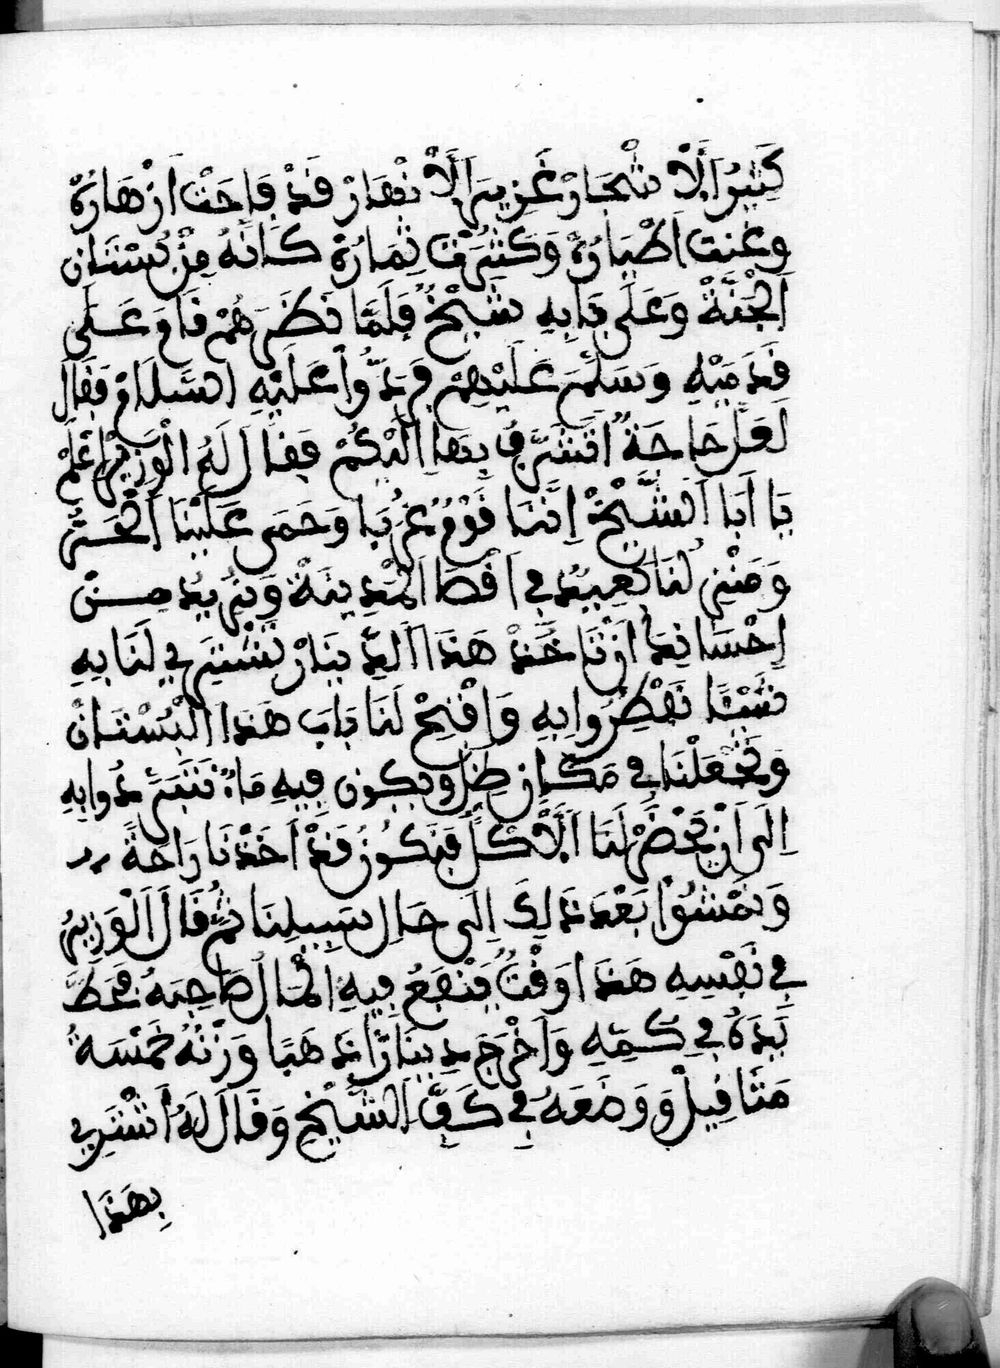 كَثِيرُ الْأَشْجَارْ غَزِيرَ الْأَنْهَارْ قَدْ فَاحَتْ ازْهَارُهْ
وغنت اَطْيَارُهْ وَكَثُرَت ثِمَارُهْ كَانهُ مِنْ بُسْتَان
الجَنَّةْ وَعَلَى بَابِهِ شَيْخٌ فَلَمَّا نَظَرَ هُمْ قَامَ عَلَى
قَدَمَيْهِ وَسَلَّمَ عَلَيْهِمْ فَرَدُّوا عَلَيْهِ السَّلَامْ فَقَال
لَعَلَّ حَاجَةٌ اتَشَرَّفُ بِهَا الَيْكُمْ فَقَالَ لَهُ الْوَزِيرُ اعْلَمْ
يَا ابَا الشَّيْخْ اِنَّنَا قَوْمٌ غُرُبَا وَحَمَى عَلَيْنَا الْحَرّ
وَمَنْزِلُنَا بَعِيدٌ فِي اَقْصَا الْمَدِينَةْ وَنُرِيدُ مِــنْ
اِحْسَانِكَ انْ تَاخُذْ هَذَا الدِينَارْ تَشْتَرِي لَنَا بِهِ
شَيْئًا نَفْطِرُوا بِهِ وَافْتِحْ لَنَا بَاب هَذَا الْبُسْتَانْ
وَتَجْعَلْنَا فِي مَكَان ظِل ويكون فِيهِ مَاءْ نَتَبَرَّدُوا بِهِ
اِلَى اَنْ يَحْضَرْ لَنَا الْأَكْلُ فَنَكُونُ قَدْ اَخَذْنَا رَاحَةً
وَنَمْشُوا بَعْدَ ذَلِكَ اِلَى حَالِ سَبِيلِنَا ثُمَّ قَالَ الْوَزِيرُ
فِي نَفْسِهِ هَذَا وَقْتٌ يَنْفَعُ فِيهِ الْمَالُ صَاحِبَهُ فَحَطَّ
يَدَهُ فِي كُمِّهِ وَاَخْرَجَ دِينَارًا ذَهَبًا وَزْنُهُ خَمْسَةُ
مَثَاقِيلْ وَوَضَعَهُ فِي كَفِّ الشَّيْخِ وَقَالَ لَهُ اشْتَرِي
بِهَذَا